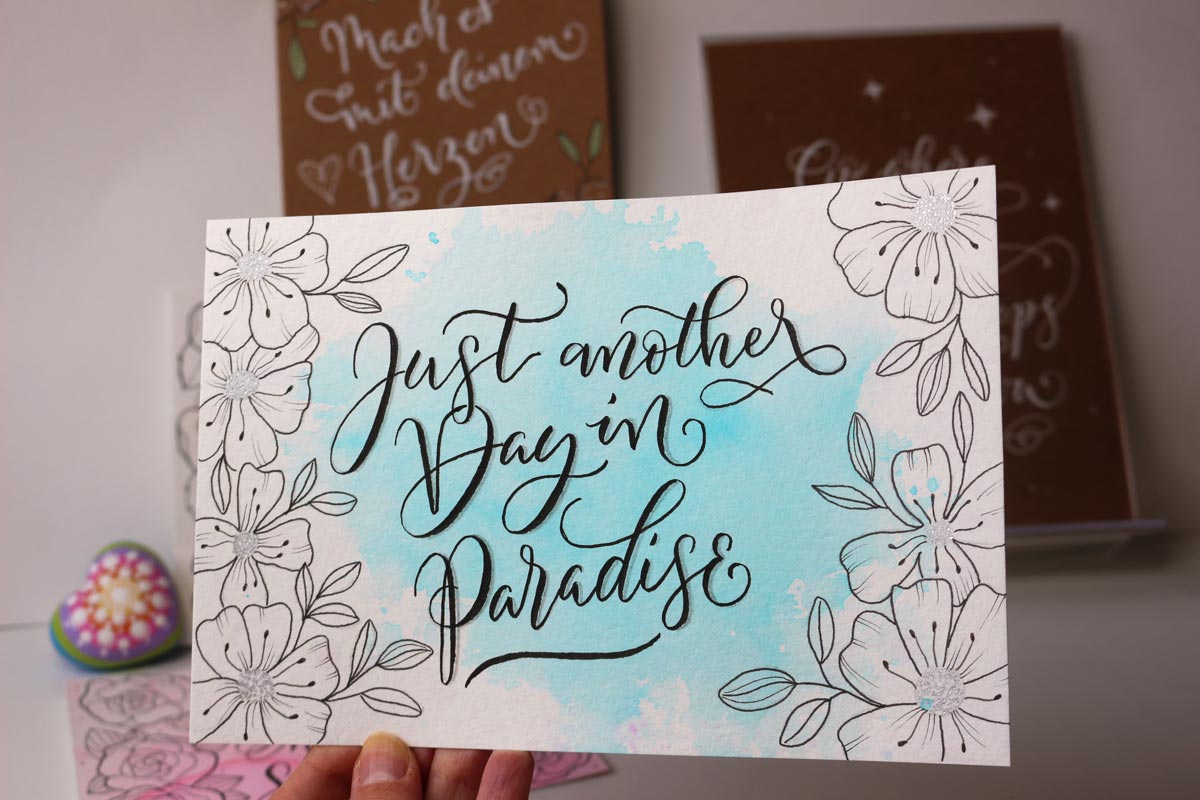 Mach es
mit deinem
Herzen
Just another
Day in
Paradise
Go where